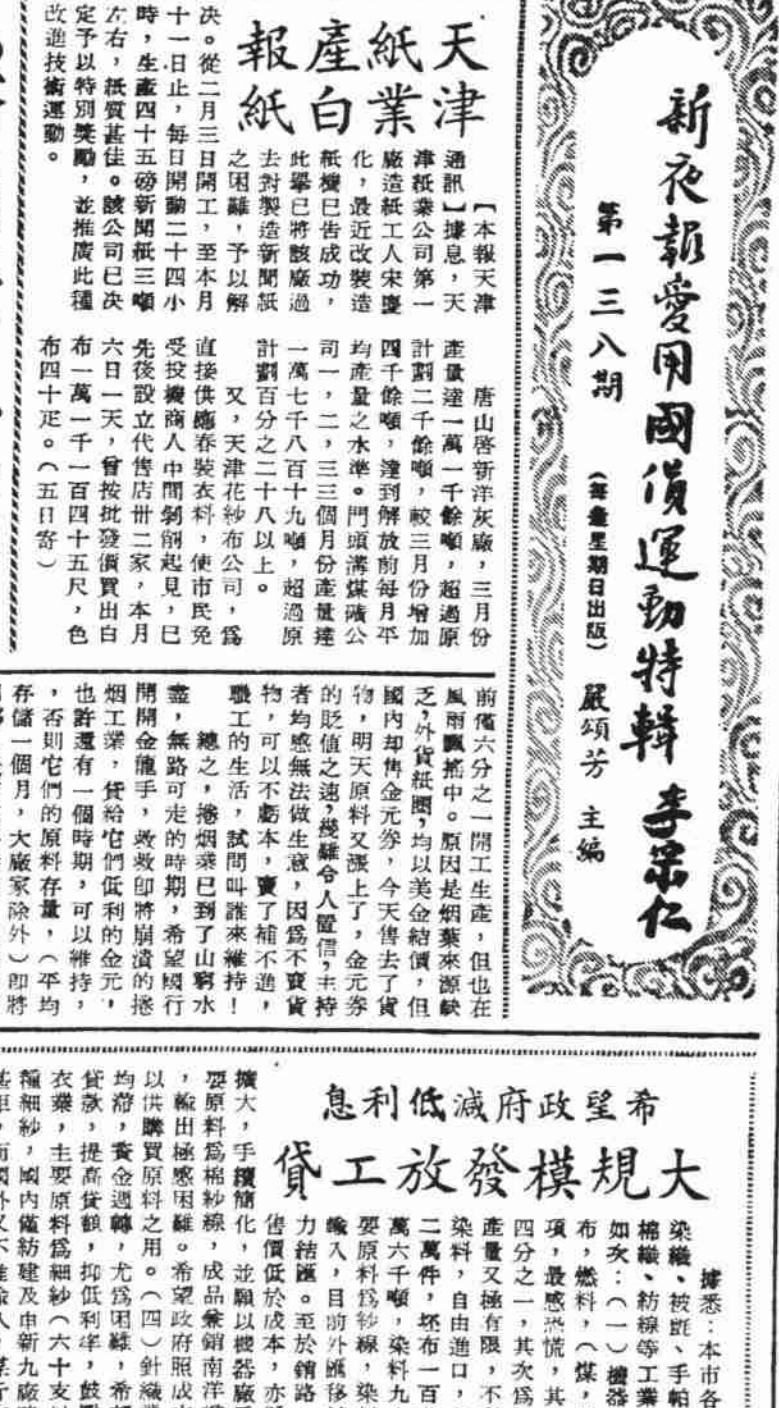 新夜報愛用國貨運動特輯 李宗仁
第一三八期 (每逢星期日出版) 嚴頌芳 主編
天津
紙業
產白
報紙
【本報天津
通訊】據息,天
津紙業公司第一
廠造紙工人宋慶
化,最近改裝造
紙機已告成功,
此舉已將該廠過
去對製造新聞紙
之困難,予以解
決。從二月三日開工,至本月
十一日止,每日開動二十四小
時,生產四十五磅新聞紙三噸
左右,紙質甚佳。該公司已決
定予以特別獎勵,並推廣此種
改進技術運動。
唐山啓新洋灰廠,三月份
產量達一萬一千餘噸,超過原
計劃二千餘噸,較三月份增加
四千餘噸,達到解放前每月平
均產量之水準。門頭溝煤礦公
司一,二,三三個月份產量達
一萬七千八百十九噸,超過原
計劃百分之二十八以上。
又,天津花紗布公司,爲
直接供應春裝衣料,使市民免
受投機商人中間剝削起見,已
先後設立代售店卅二家,本月
六日一天,曾按批發價買出白
布一萬一千一百四十五尺,色
布四十疋。(五日寄)
前僅六分之一開工生產,但也在
風雨飄搖中。原因是烟葉來源缺
乏,外貨紙圈,均以美金結價,但
國內却售金元券,今天售去了貨
物,明天原料又漲上了,金元券
的貶值之速,幾難令人置信,主持
者均感無法做生意,因爲不賣貨
物,可以不虧本,賣了補不進,
職工的生活,試問叫誰來維持!
總之,捲烟業已到了山窮水
盡,無路可走的時期,希望國行
開開金龍手,救救卽將崩潰的捲
烟工業,貸給它們低利的金元,
也許還有一個時期,可以維持,
,否則它們的原料存量,(平均
存儲一個月,大廠家除外)卽將
希望政府減低利息
大規模發放工貸
據悉:本市各
染織、被毯、手帕
棉織、紡線等工業
如次:(一)機器
布,燃料,(煤,
項,最感恐慌,其
四分之一,其次爲
產量又極有限,不
染料,自由進口,
二萬件,坯布一百
萬六千噸,染料九
要原料爲紗線,染
輸入,目前外匯移
力結匯。至於銷路
售價低於成本,亦
擴大,手續簡化,並願以機器廠
要原料爲棉紗線,成品兼銷南洋
,輸出極感困難。希望政府照成
以供購買原料之用。(四)針織
均滯,資金週轉,尤爲困難,希
貸款,提高貸額,抑低利率,鼓
衣業,主要原料爲細紗(六十支
種細紗,國內僅紡建及申新九廠